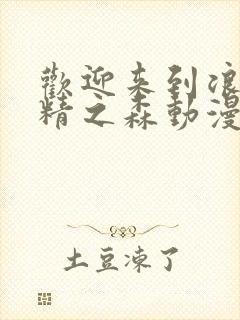 歡迎来到浪
精之森動漫
土豆凍了